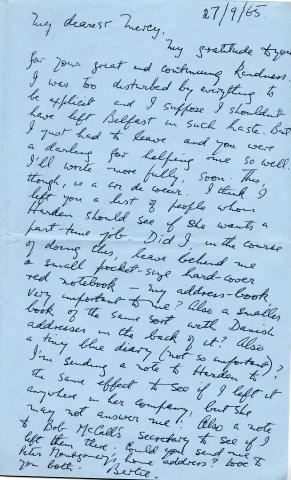 27/9/65.
My dearest Mercy,
My gratitude to you
for your great and continuing kindness.
I was too disturbed by everything to
be explicit and I suppose I shouldn't
have left Belfast in such haste. But
I just had to leave and you were
a darling for helping me so well.
I'll write more fully soon. This,
though, is a cri de coeur. I think I
left you a list of people whom
Harden should see if she wants a
part-time job. Did I, in the course
of doing this, leave behind me
a small pocket-size hard-cover
red notebook – my address-book,
very important to me? Also a smaller
book of the same sort with Danish
addresses in the back of it? Also
a tiny blue diary (not so important)?
I'm sending a note to Harden to
the same effect to see if I left it
anywhere in her company, but she
may not answer me! Also a note
to Bob McCall's secretary to see if I
left them there. Could you send me
Peter Montgomery's home address? Love to
you both. Bertie.